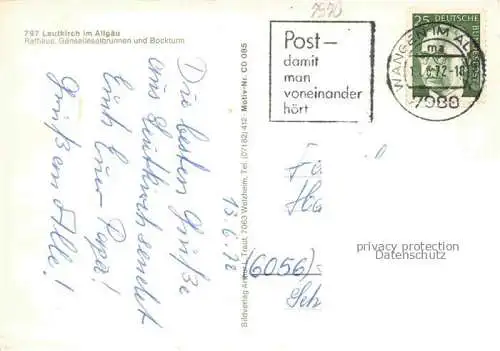 797 Leutkirch im Allgäu
Rathaus, Gänselieselbrunnen und Bockturm
Die besten Grüße
aus Leutkirch sendet
Euch Euer Papa!
Grüßen Alle!
13.6.72
Bildverlag
7063 Welzheim, Tel. (07182) 412 · Motiv-Nr. CO 085
7970
Post –
damit
man
voneinander
hört
WANGEN IM AL
ma
.6.72-18
7988
25 DEUTSCHE
BUNDESPOST
(6056)
privacy protection
Datenschutz